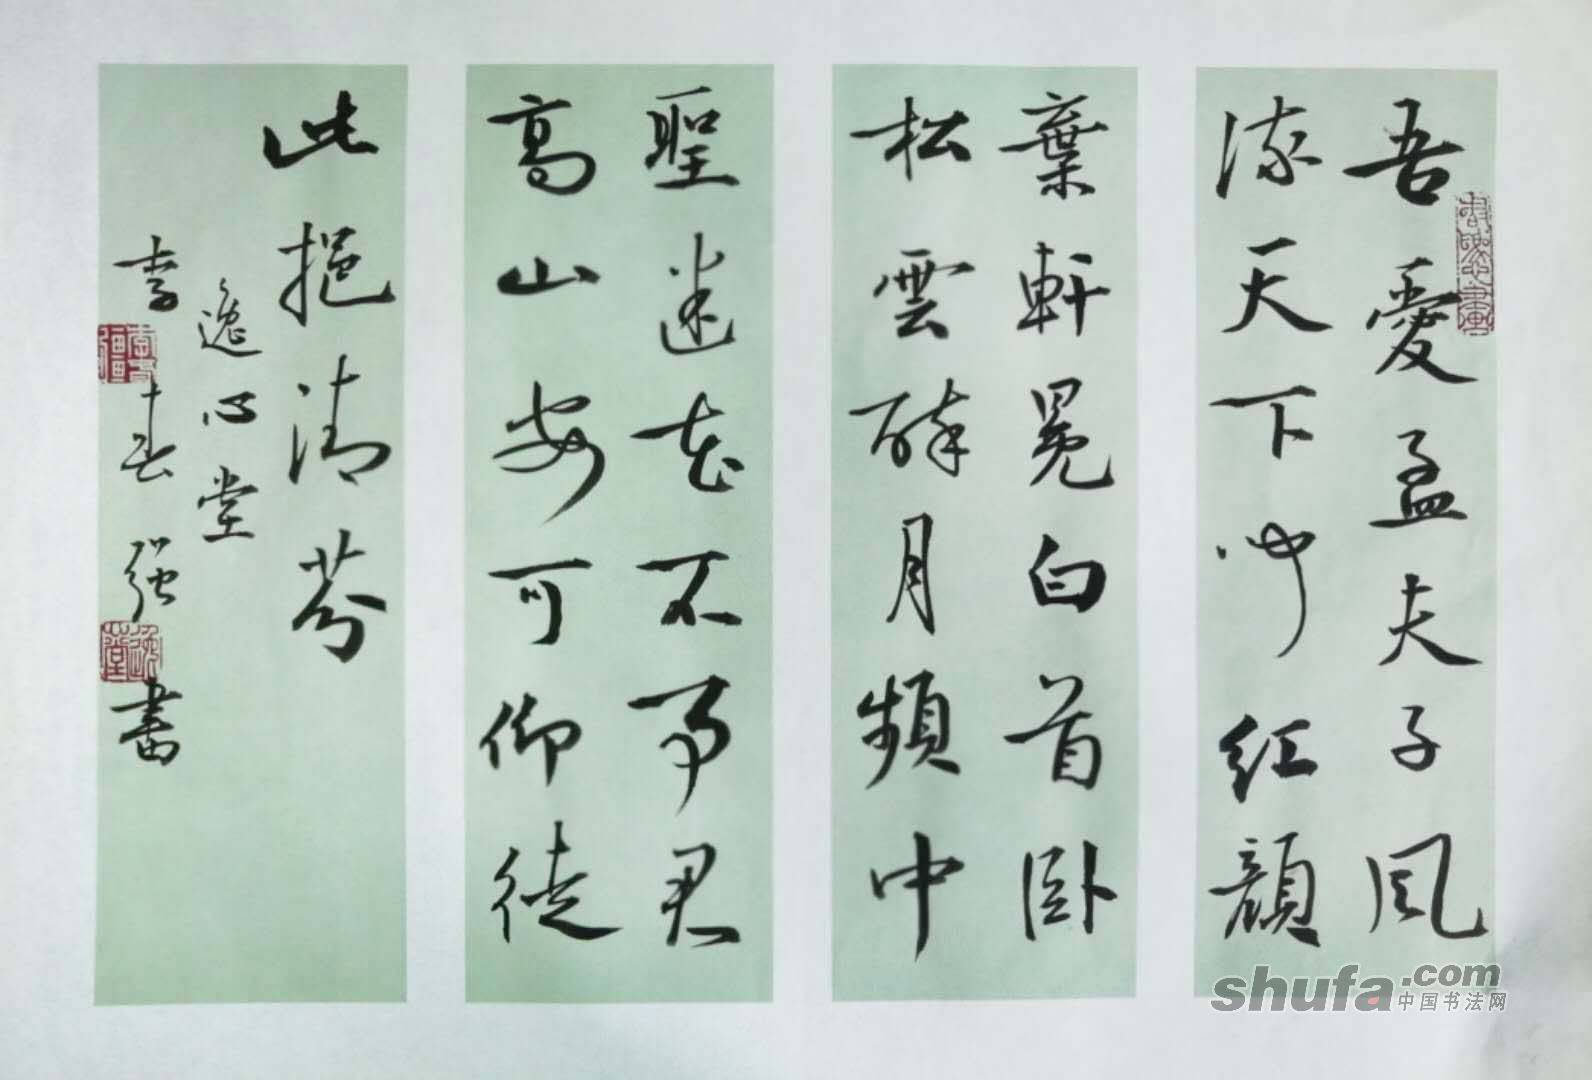 吾愛孟夫子风
流天下聞紅顏
棄軒冕白首卧
松雲醉月頻中
聖迷花不事君
高山安可仰徒
此挹清芬
逸心堂
李春强書
shufa.com
中国书法网